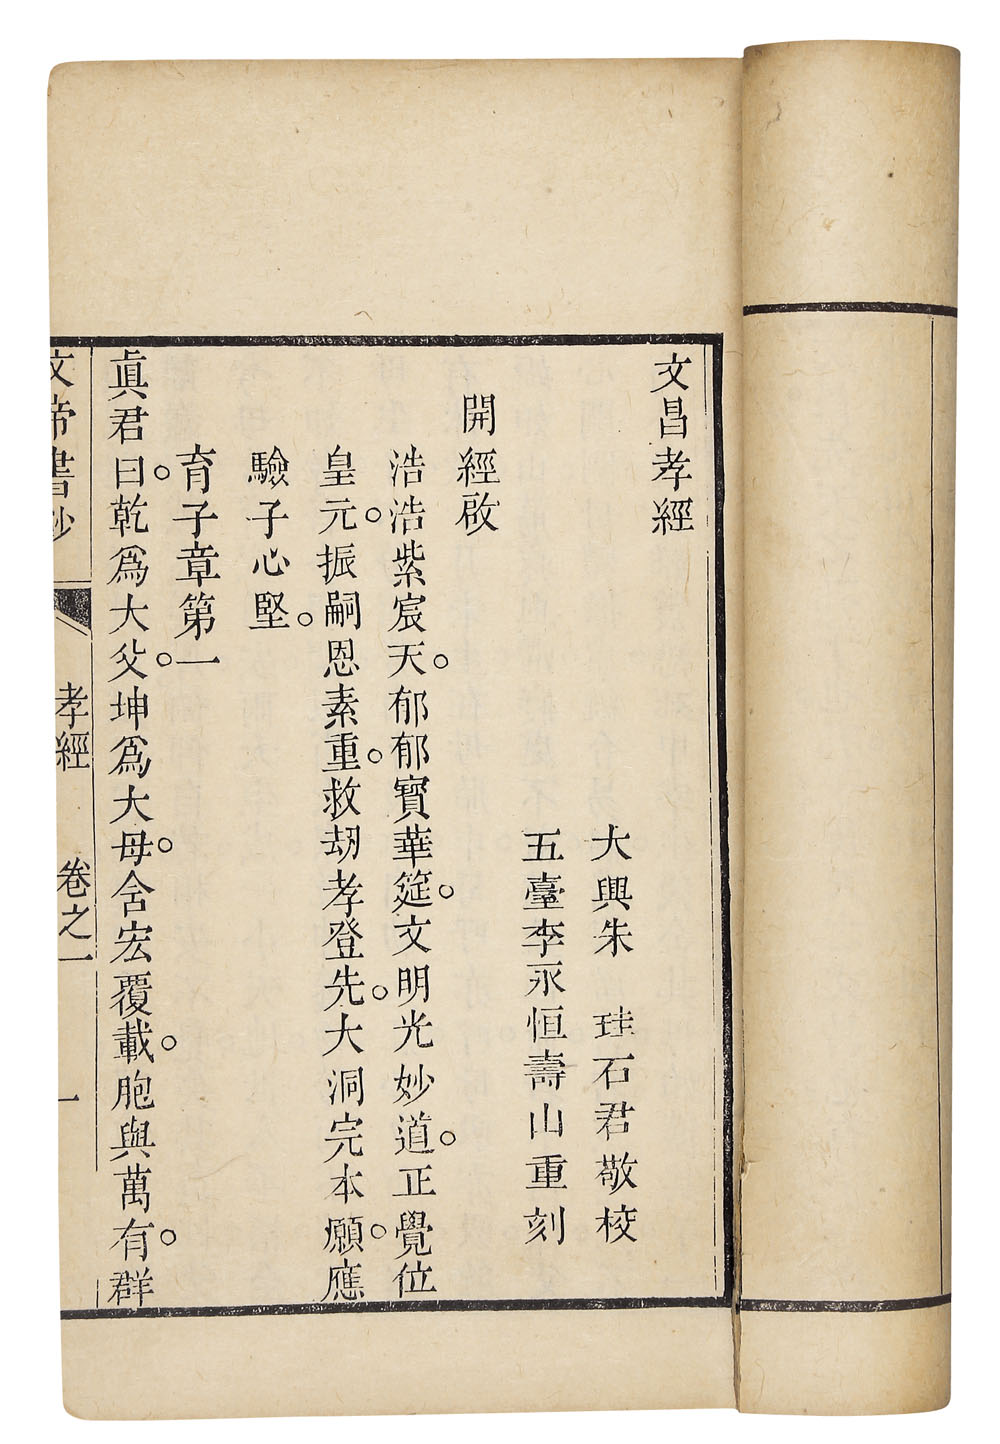 文昌孝經
大興朱　珪石君敬校
五臺李永恒壽山重刻
開經啟
浩浩紫宸天。郁郁寶華筵。文明光妙道。正覺位
皇元。振嗣恩素重。救劫孝登先。大洞完本願。應
驗子心堅。
育子章第一
眞君曰。乾爲大父。坤爲大母。含宏覆載。胞與萬有。群
文帝書鈔　孝經　卷之一　一